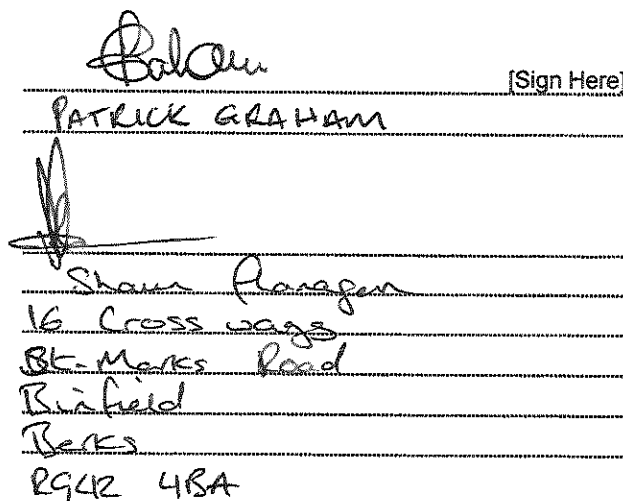 [Sign Here]
PATRICK GRAHAM
Shaun Flanagan
16 Cross ways
St-Marks Road
Binfield
Berks
RG42 4BA